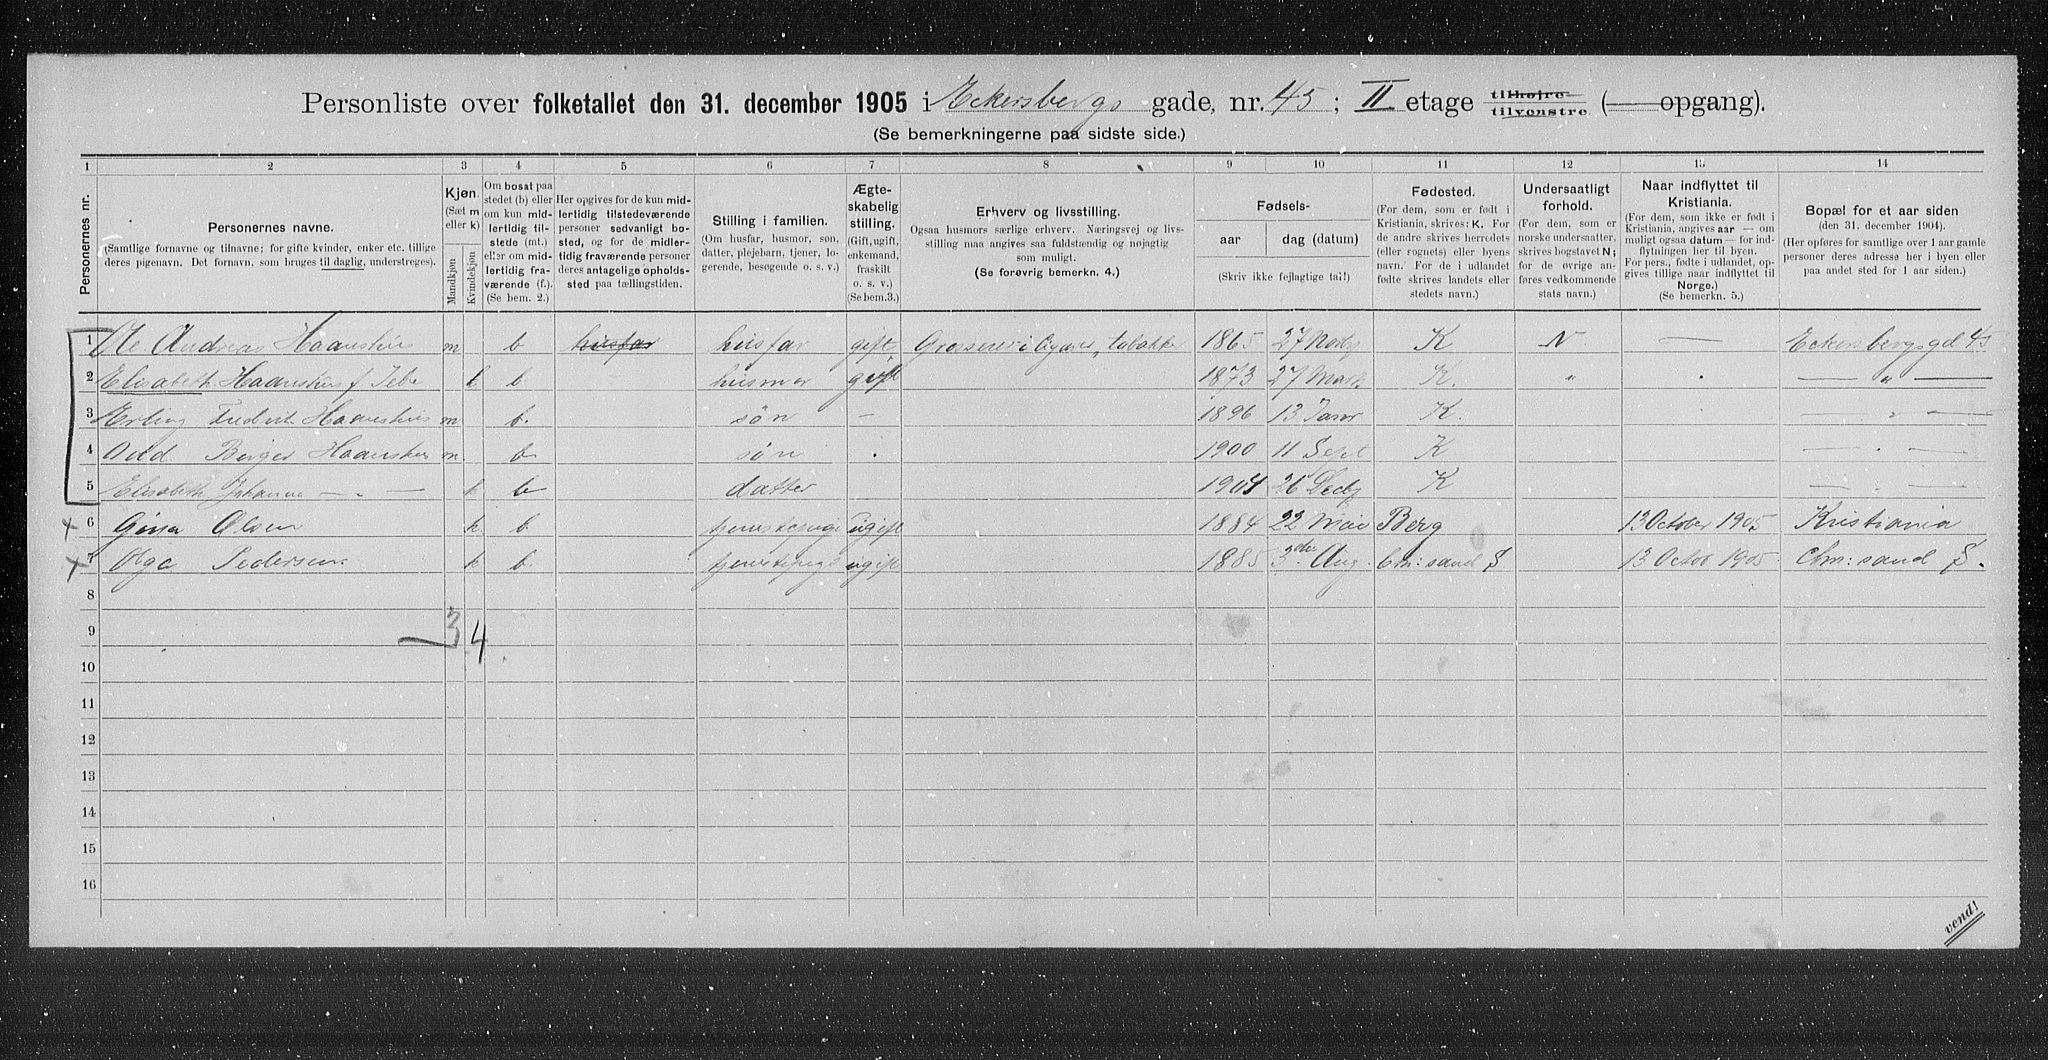 Personliste over folketallet den 31. december 1905 i Eckersbergs gade, nr. 45; II etage tilhøjre tilvenstre (— opgang).
(Se bemerkningerne paa sidste side.)
1 2 3 4 5 6 7 8 9 10 11 12 13 14
Personernes nr.
Personernes navne.
(Samtlige fornavne og tilnavne; for gifte kvinder, enker etc. tillige deres pigenavn. Det fornavn, som bruges til daglig, understreges).
Kjøn.
(Sæt m eller k)
Mandkjøn
Kvindekjøn
Om bosat paa stedet (b) eller om kun midlertidig tilstede (mt.) eller om midlertidig fraværende (f.). (Se bem. 2.)
Her opgives for de kun midlertidig tilstedeværende personer sedvanligt bosted, og for de midlertidig fraværende personer deres antagelige opholdssted paa tællingstiden.
Stilling i familien.
(Om husfar, husmor, søn, datter, plejebarn, tjener, logerende, besøgende o. s. v.)
Ægteskabelig stilling.
(Gift, ugift, enkemand, fraskilt o. s. v.) (Se bem. 3.)
Erhverv og livsstilling.
Ogsaa husmors særlige erhverv. Næringsvej og livsstilling maa angives saa fuldstændig og nøjagtig som muligt.
(Se forøvrig bemerkn. 4.)
Fødsels-
aar
dag (datum)
(Skriv ikke fejlagtige tal!)
Fødested.
(For dem, som er født i Kristiania, skrives: K. For de andre skrives herredets (eller sognets) eller byens navn. For de i udlandet fødte skrives landets eller stedets navn.)
Undersaatligt forhold.
(For dem, som er norske undersaatter, skrives bogstavet N; for de øvrige anføres vedkommende stats navn.)
Naar indflyttet til Kristiania.
(For dem, som ikke er født i Kristiania, angives aar — om muligt ogsaa datum — for indflytningen her til byen. For pers., fødte i udlandet, opgives tillige naar indflyttet til Norge.)
(Se bemerkn. 5.)
Bopæl for et aar siden
(den 31. december 1904).
(Her opføres for samtlige over 1 aar gamle personer deres adresse her i byen eller paa andet sted for 1 aar siden.)
1 Ole Andreas Haanshus m b husfar husfar gift Grosserer i Cigarer, tobakke 1865 27 Novbr K N — Eckersbergsgd 45
2 Elisabeth Haanshus f Jebe k b husmor gift 1873 27 Mart. K. " — " —
3 Erling Fredrik Haanshus m b. søn — 1896 13 Janr K. — " —
4 Odd Birger Haanshus m. b søn 1900 11 Sept K — " —
5 Elisabeth Johanne — " — k b datter 1904 26 Decbr K — " —
x 6 Gina Olsen k b tjenestepige ugift 1884 22 Mai Berg 13 October 1905 Kristiania
x 7 Olga Pedersen k b. tjenestepige ugift 1885 3die Aug. Chr: sand S 13 Octob 1905 Chr: sand S.
8
9 3 4
10
11
12
13
14
15
16
vend!